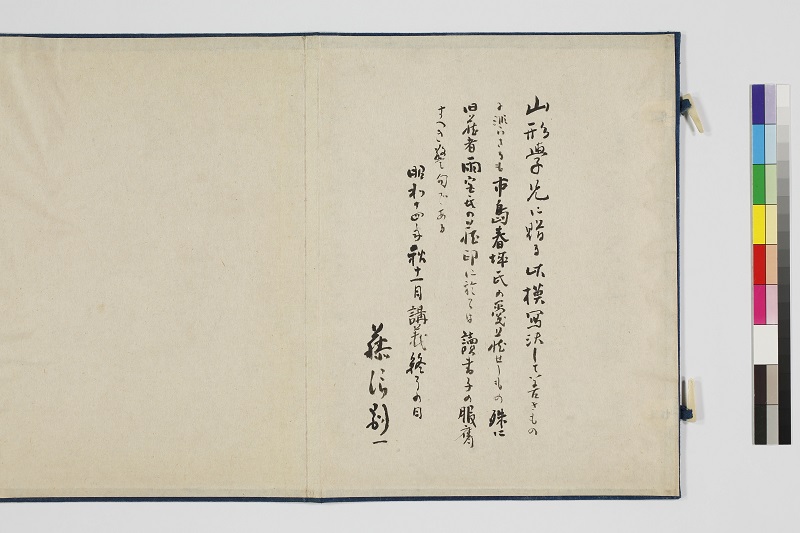 山形学兄に贈る 此模写決して善きもの
に非ざるも市島春城氏の愛蔵せしもの 殊に
旧蔵者雨宮氏の蔵印に於ては読書子の服膺
すべき警句がある
昭和十四年秋十一月講義終了の日